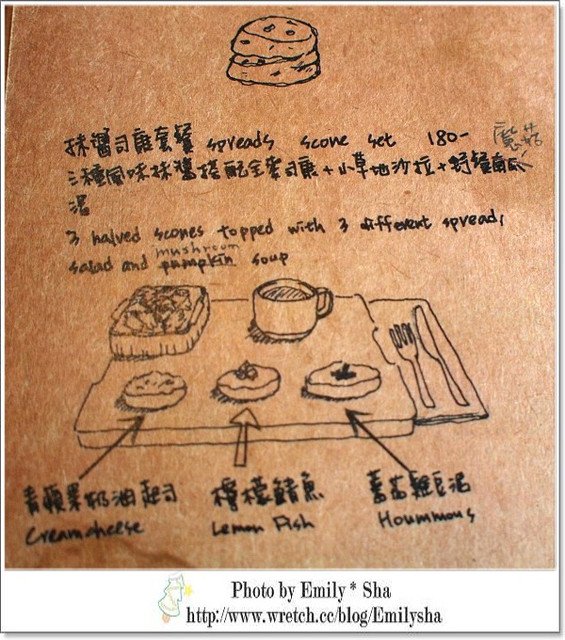 抹醬司康套餐 spreads scone set 180-
蘑菇
三種風味抹醬搭配全麥司康+小草地沙拉+野餐南瓜
湯
3 halved scones topped with 3 different spread,
mushroom
salad and pumpkin soup
青蘋果奶油起司 檸檬鯖魚 茴香雞豆泥
Creamcheese Lemon Fish Hoummous
Photo by Emily * Sha
http://www.wretch.cc/blog/Emilysha